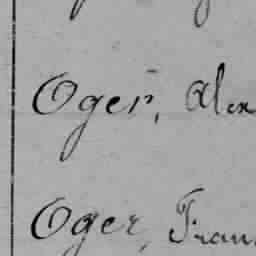 Oger, Alex
Oger, Fran